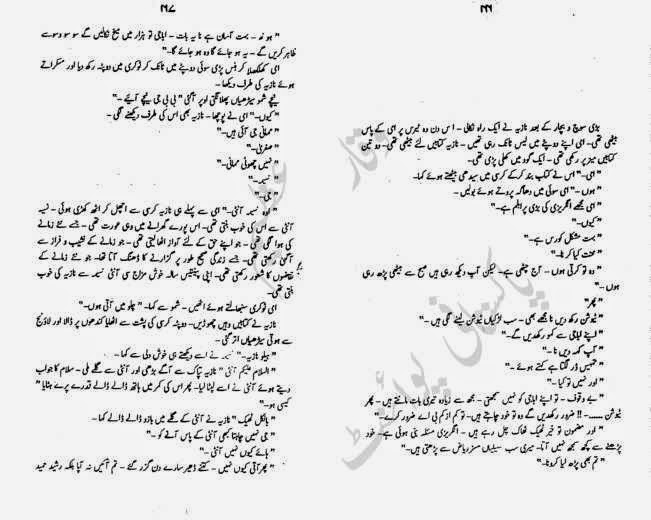 ۶۶
بڑی سوچ و بچار کے بعد نازیہ نے ایک راہ نکالی۔ اس دن وہ ٹیرس پر امی کے پاس
بیٹھی تھی۔ امی اپنے دوپٹے میں لیس ٹانک رہی تھیں۔ نازیہ کتابیں لئے بیٹھی تھی۔ دو تین
کتابیں میز پر رکھی تھی۔ ایک گود میں کھلی پڑی تھی۔
"امی۔" اس نے کتاب بند کر کے کرسی میں سیدھی بیٹھتے ہوئے کہا۔
"ہوں۔" امی سوئی میں دھاگہ پروتے ہوئے بولیں۔
"امی مجھے انگریزی کی بڑی پرابلم ہے۔"
"کیوں۔"
"بہت مشکل کورس ہے۔"
"محنت کیا کرنا۔"
"وہ تو کرتی ہوں۔ آج چھٹی ہے۔ لیکن آپ دیکھ رہی ہیں صبح سے بیٹھی پڑھ رہی
ہوں۔"
"پھر"
"ٹیوشن رکھ دیں نا مجھے بھی۔ سب لڑکیاں ٹیوشن لینے لگی ہیں۔"
"اپنے اباجی سے کہو رکھ دیں گے۔"
"آپ کہہ دیں نا۔"
"تمہیں ڈر لگتا ہے کہتے ہوئے۔"
"اور نہیں تو کیا۔"
"بے وقوف۔ تم اپنے اباجی کو نہیں سمجھتی۔ مجھ سے زیادہ تیری بات مانتے ہیں۔ پھر
ٹیوشن ۔۔۔۔۔۔ !! ضرور رکھ دیں گے وہ تو خود چاہتے ہیں۔ تو کم از کم بی اے ضرور کرے۔"
"اور مضمون تو خیر ٹھیک ٹھاک چل رہے ہیں۔ انگریزی مسئلہ بنی ہوئی ہے۔ خود
پڑھنے سے کچھ سمجھ نہیں آتا۔ میری سب سہیلیاں مسز ریاض سے پڑھتی ہیں۔"
"تم بھی پڑھ لیا کرو نا۔"
۶۷
"ہو نہہ۔ بہت آسان ہے نا یہ بات۔ اباجی تو ہزار میں میخ نکالیں گے
ظاہر کریں گے۔ یہ ہو جائے گا وہ ہو جائے گا۔"
امی کھلکھلا کر ہنس پڑی سوئی دوپٹے میں ٹانک کر ٹوکری میں دوپٹہ رکھ دیا اور مسکراتے
ہوئے نازیہ کی طرف دیکھا۔
نیچے شمو سیڑھیاں پھلانگتی اوپر آگئی "بی بی جی نیچے آئیے۔"
"کیوں۔" امی نے پوچھا۔ نازیہ بھی اس کی طرف دیکھنے لگی۔
"ممانی جی آئی ہیں۔"
"صغریٰ۔"
"نہیں چھوٹی ممانی۔"
"نسیمہ۔"
"جی۔"
"اوہ نسیمہ آنٹی۔" امی سے پہلے ہی نازیہ کرسی سے اچھل کر اٹھ کھڑی ہوئی۔ نسیمہ
آنٹی سے اس کی خوب بنتی تھی۔ اس پورے گھرانے میں وہی عورت تھی۔ جسے نئے زمانے
کی ہوا لگی تھی۔ جو اپنے حق کے لئے آواز اٹھا لیتی تھی۔ جو زمانے کے نشیب و فراز سے
آگہی رکھتی تھی۔ جسے زندگی صحیح طور پر گزارنے کا ڈھنگ آتا تھا۔ جو نئے زمانے کے
تقاضوں کا شعور رکھتی تھی۔ اپنی پینتیس سالہ خوش مزاج سی آنٹی نسیمہ سے نازیہ کی خوب
بنتی تھی۔
امی ٹوکری سنبھالتے ہوئے اٹھیں۔ شمو سے کہا۔ "چلو میں آتی ہوں۔"
نازیہ نے کتابیں وہیں چھوڑیں۔ دوپٹہ کرسی کی پشت سے اٹھایا کندھوں پر ڈالا اور لاؤنج
سے ہوتی سیڑھیاں اتر گئی۔
"ہیلو نازیہ۔" نسیمہ نے اسے دیکھتے ہی خوش دلی سے کہا۔
"السلام علیکم آنٹی" نازیہ تپاک سے آگے بڑھی اور آنٹی سے گلے ملی۔ سلام کا جواب
دیتے ہوئے آنٹی نے اسے لپٹا لیا۔ پھر اس کی کمر میں ہاتھ ڈالے ڈالے قدرے پرے ہٹایا "
کیسی ہو۔"
"بالکل ٹھیک" نازیہ نے آنٹی کے گلے میں بازو ڈالے ڈالے کہا۔
"جی نہیں چاہتا کبھی آنٹی کے پاس آنے کو۔"
"ہائے کیوں نہیں آنٹی۔"
"پھر آتی کیوں نہیں۔ کتنے ڈھیر سارے دن گزر گئے۔ تم آئیں نہ آپا بلکہ رشید حمید
پاکستانی پوائنٹ